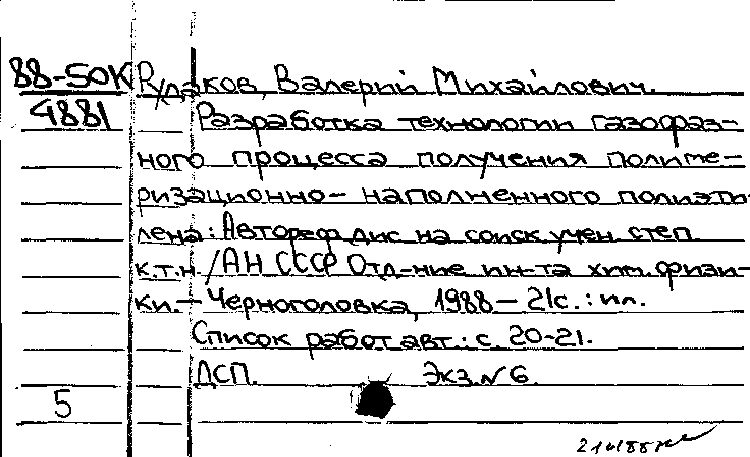 88-50К Рудаков, Валерий Михайлович.
4881 Разработка технологии газофаз-
ного процесса получения полиме-
ризационно-наполненного полиэти-
лена: Автореф дис на соиск учен степ
к.т.н. /АН СССР Отд-ние ин-та хим. физи-
ки. — Черноголовка, 1988 — 21с. : ил.
Список работ авт.: с. 20-21.
ДСП. Экз. № 6.
5